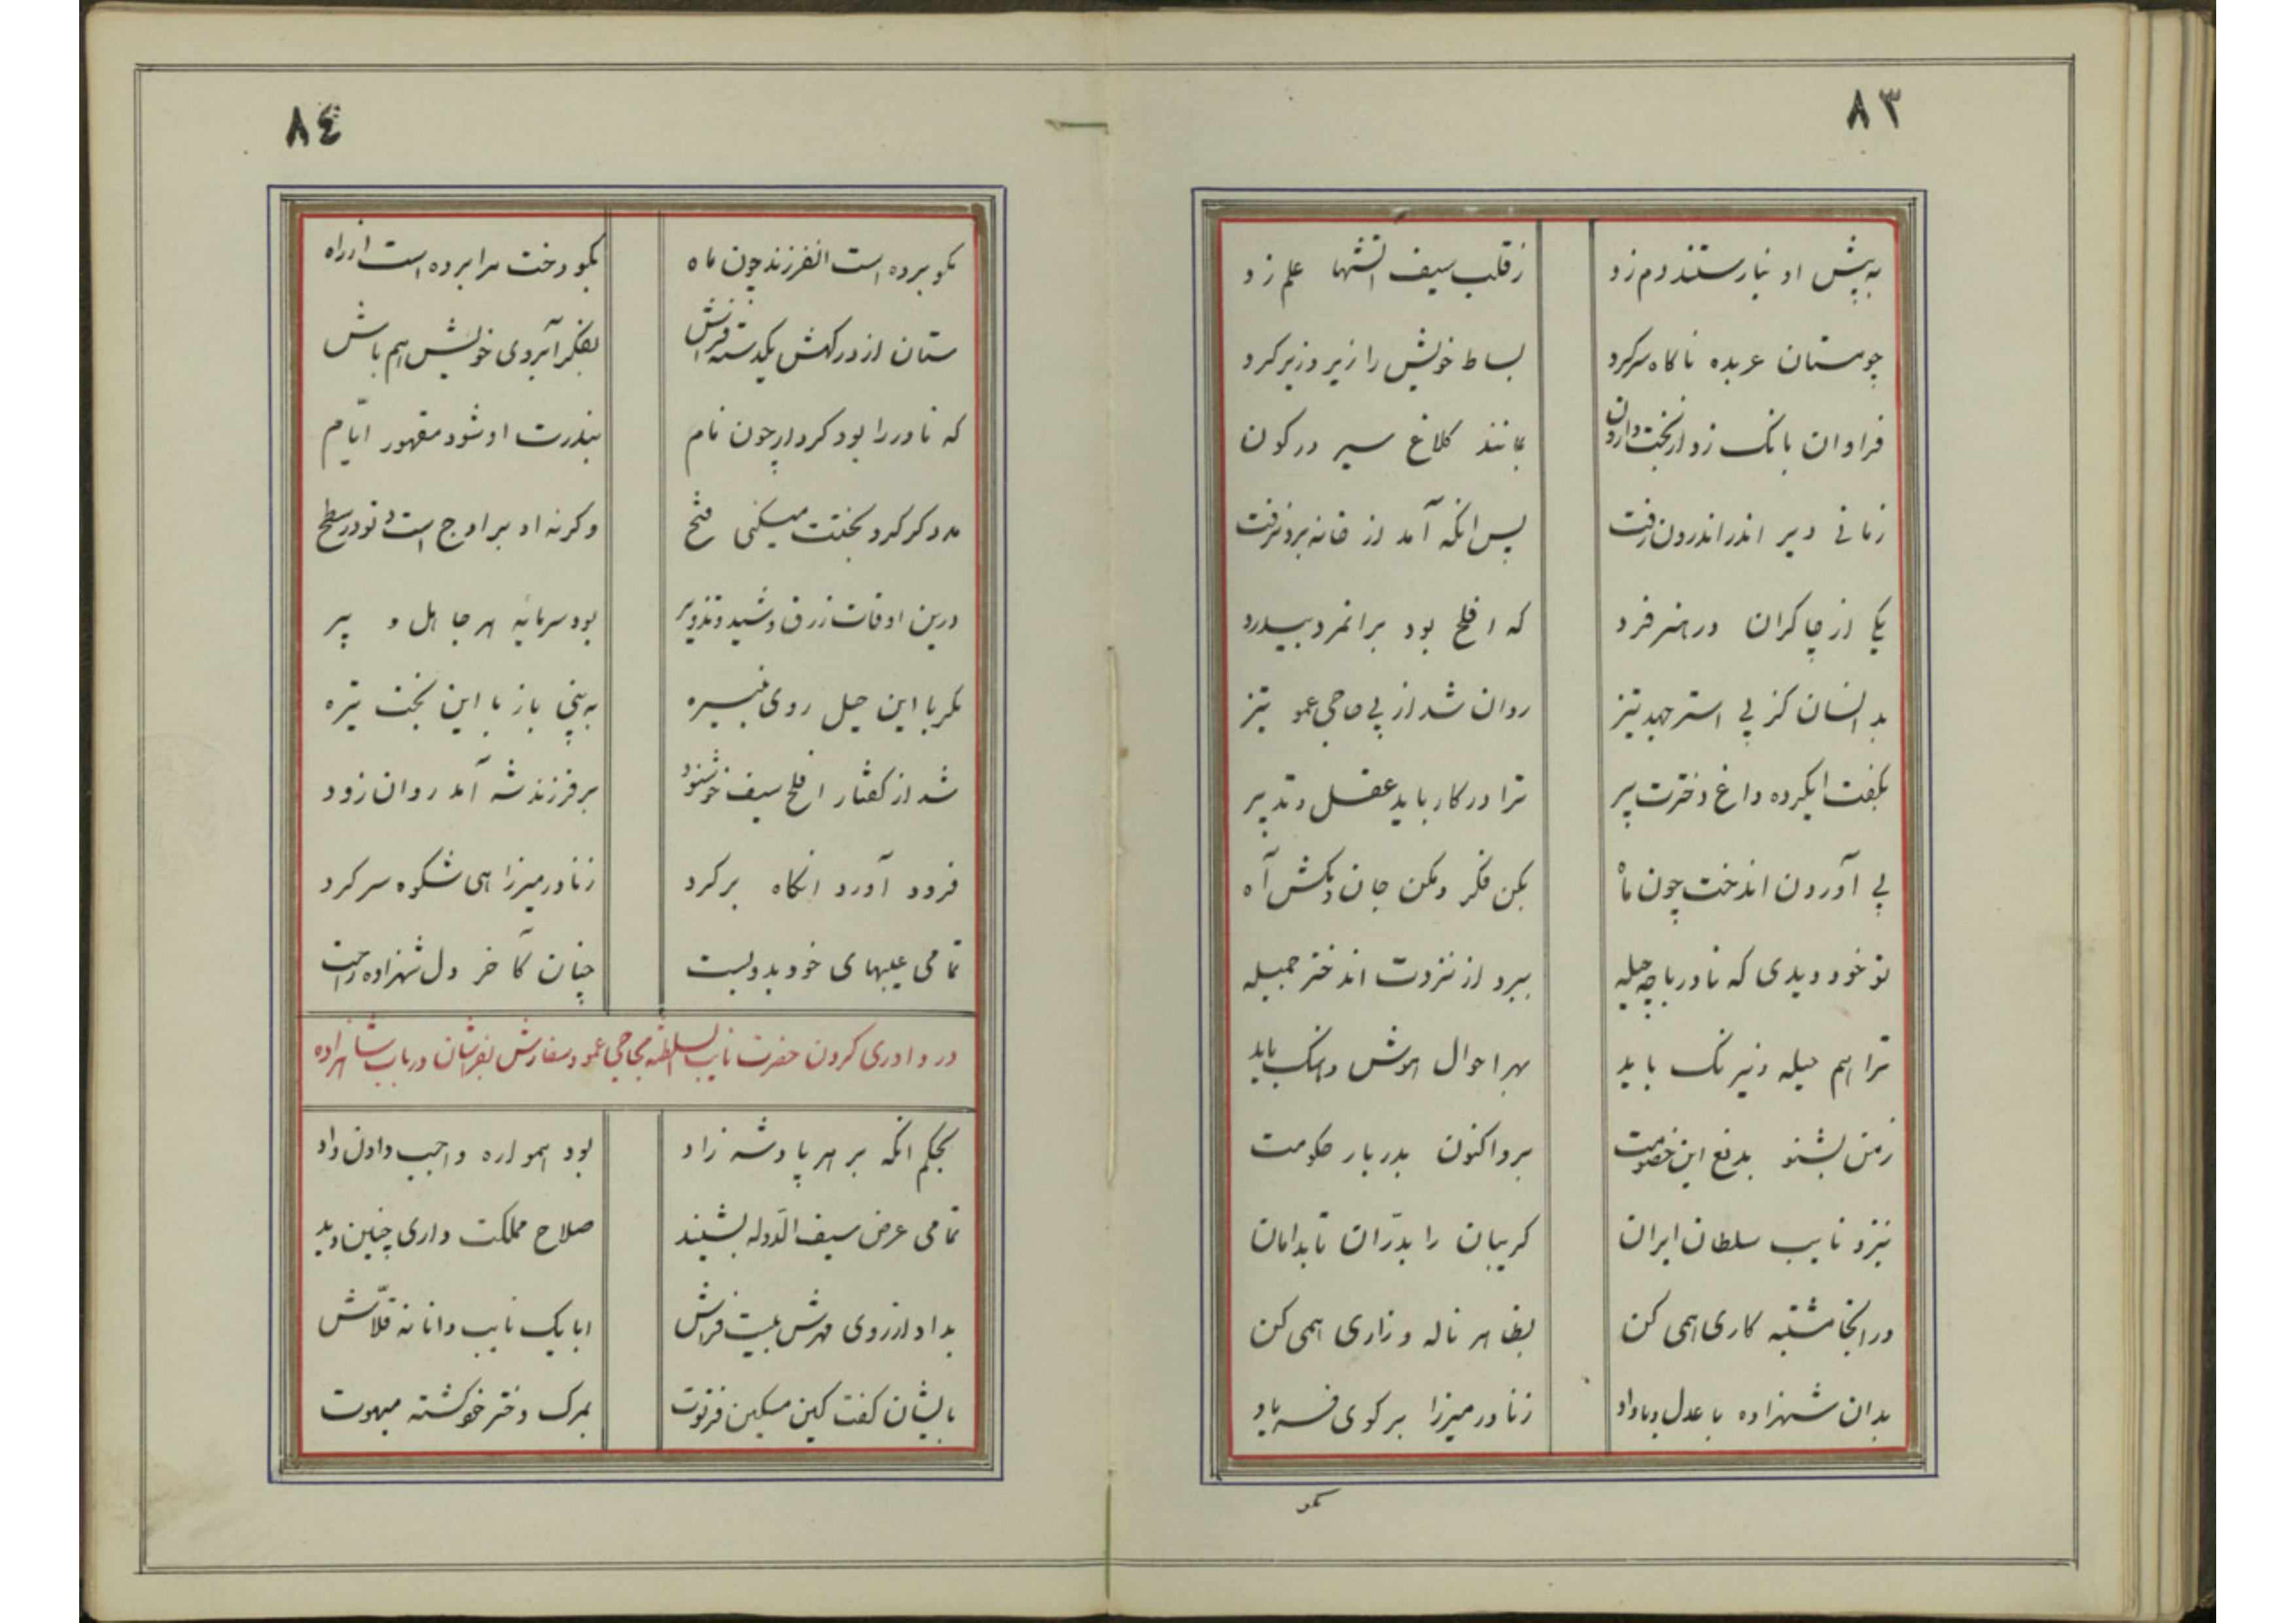 ٨٣
به پیش او نیارستند دم زد زقلب سیف اتشها علم زد
چومستان عربده ناکاه سرکرد بساط خویش را زیر وزبر کرد
فراوان بانک زد ازبخت وارون بمانند کلاغ سیر در کون
زمانی دیر اندر اندرون رفت پس انکه آمد از خانه برون رفت
یکی از چاکران در هنر فرد که افلح بود برانمرد بیدرد
بد انسان کز پی استر جهد تیز روان شد از پی حاجی عمو تیز
بکفت ایکرده داغ دخترت پیر ترا در کار باید عقل وتدبیر
پی آوردن اندخت چون ماه بکن فکر ومکن جان ومکش آه
تو خود دیدی که نادر باچه حیله ببرد از نزدت اندختر جمیله
ترا هم حیله ونیرنک باید بهر احوال هوش وهنک باید
زمن بشنو بدفع این خصومت برو اکنون بدربار حکومت
بنزد نایب سلطان ایران کریبان را بدرّان تا بدامان
در انجا مشتبه کاری همی کن بظاهر ناله وزاری همی کن
بدان شهزاده با عدل وباداد زنادر میرزا بر کوی فریاد
بکو
٨٤
بکو برده است انفرزند چون ماه بکو دخت مرا برده است از راه
ستان از درکهش یکدسته فراش بفکر آبروی خویش هم باش
که نادر را بود کردار چون نام بنذرت او شود مقهور ایّام
مدد کر کرد بختت میکنی فتح وکرنه او بر اوج است وتو در سطح
درین اوقات زرق وشید وتذویر بود سرمایه هر جاهل و پیر
مکر با این حیل روی نبیره به بینی باز با این بخت تیره
شد از کفتار افلح سیف خوشنود بر فرزند شه آمد روان زود
فرود آورد انکاه بر کرد زنادر میرزا هی شکوه سر کرد
تمامی عیبهای خود بدو بست چنان کآخر دل شهزاده را خست
در دادری کردن حضرت نایب السلطنه بحاجی عمو وسفارش بفراشان در باب شاهزاده
بحکم انکه بر هر پادشه زاد بود همواره واجب دادن داد
تمامی عرض سیف الدّوله بشنید صلاح مملکت داری چنین دید
بداد ازروی مهرش بیست فراش ابا یک نایب دانا نه قلّاش
بایشان کفت کین مسکین فرتوت بمرک دختر خود کشته مبهوت